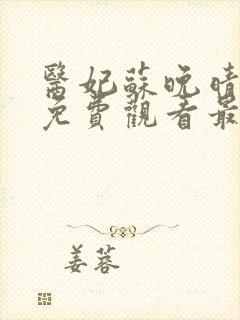 醫妃蘇晚晴
免費觀看最
姜蓉